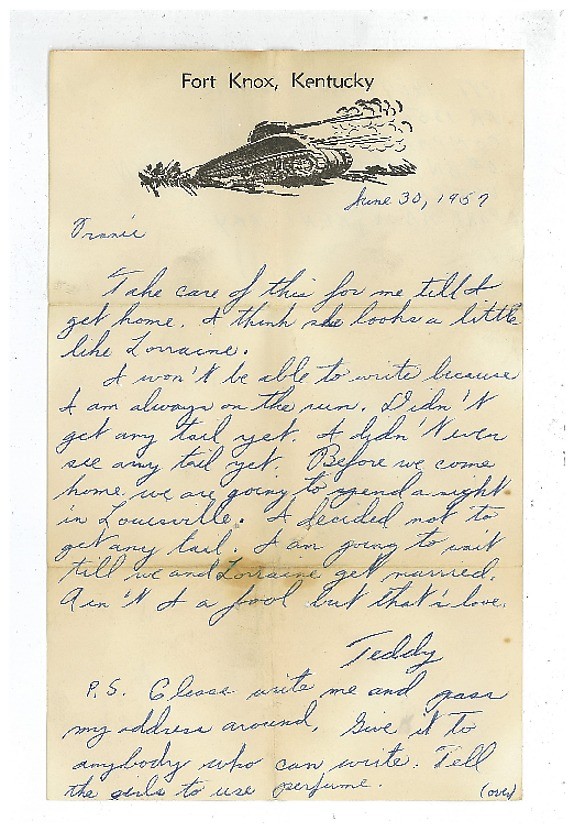 Fort Knox, Kentucky
June 30, 1957
Franie
Take care of this for me till I
get home. I think she looks a little
like Lorraine.
I won't be able to write because
I am always on the run. Didn't
get any tail yet. I didn't even
see any tail yet. Before we come
home we are going to spend a night
in Louisville. I decided not to
get any tail. I am going to wait
till me and Lorraine get married.
Ain't I a fool but that's love.
Teddy
P.S. Please write me and pass
my address around. Give it to
anybody who can write. Tell
the girls to use perfume.
(over)